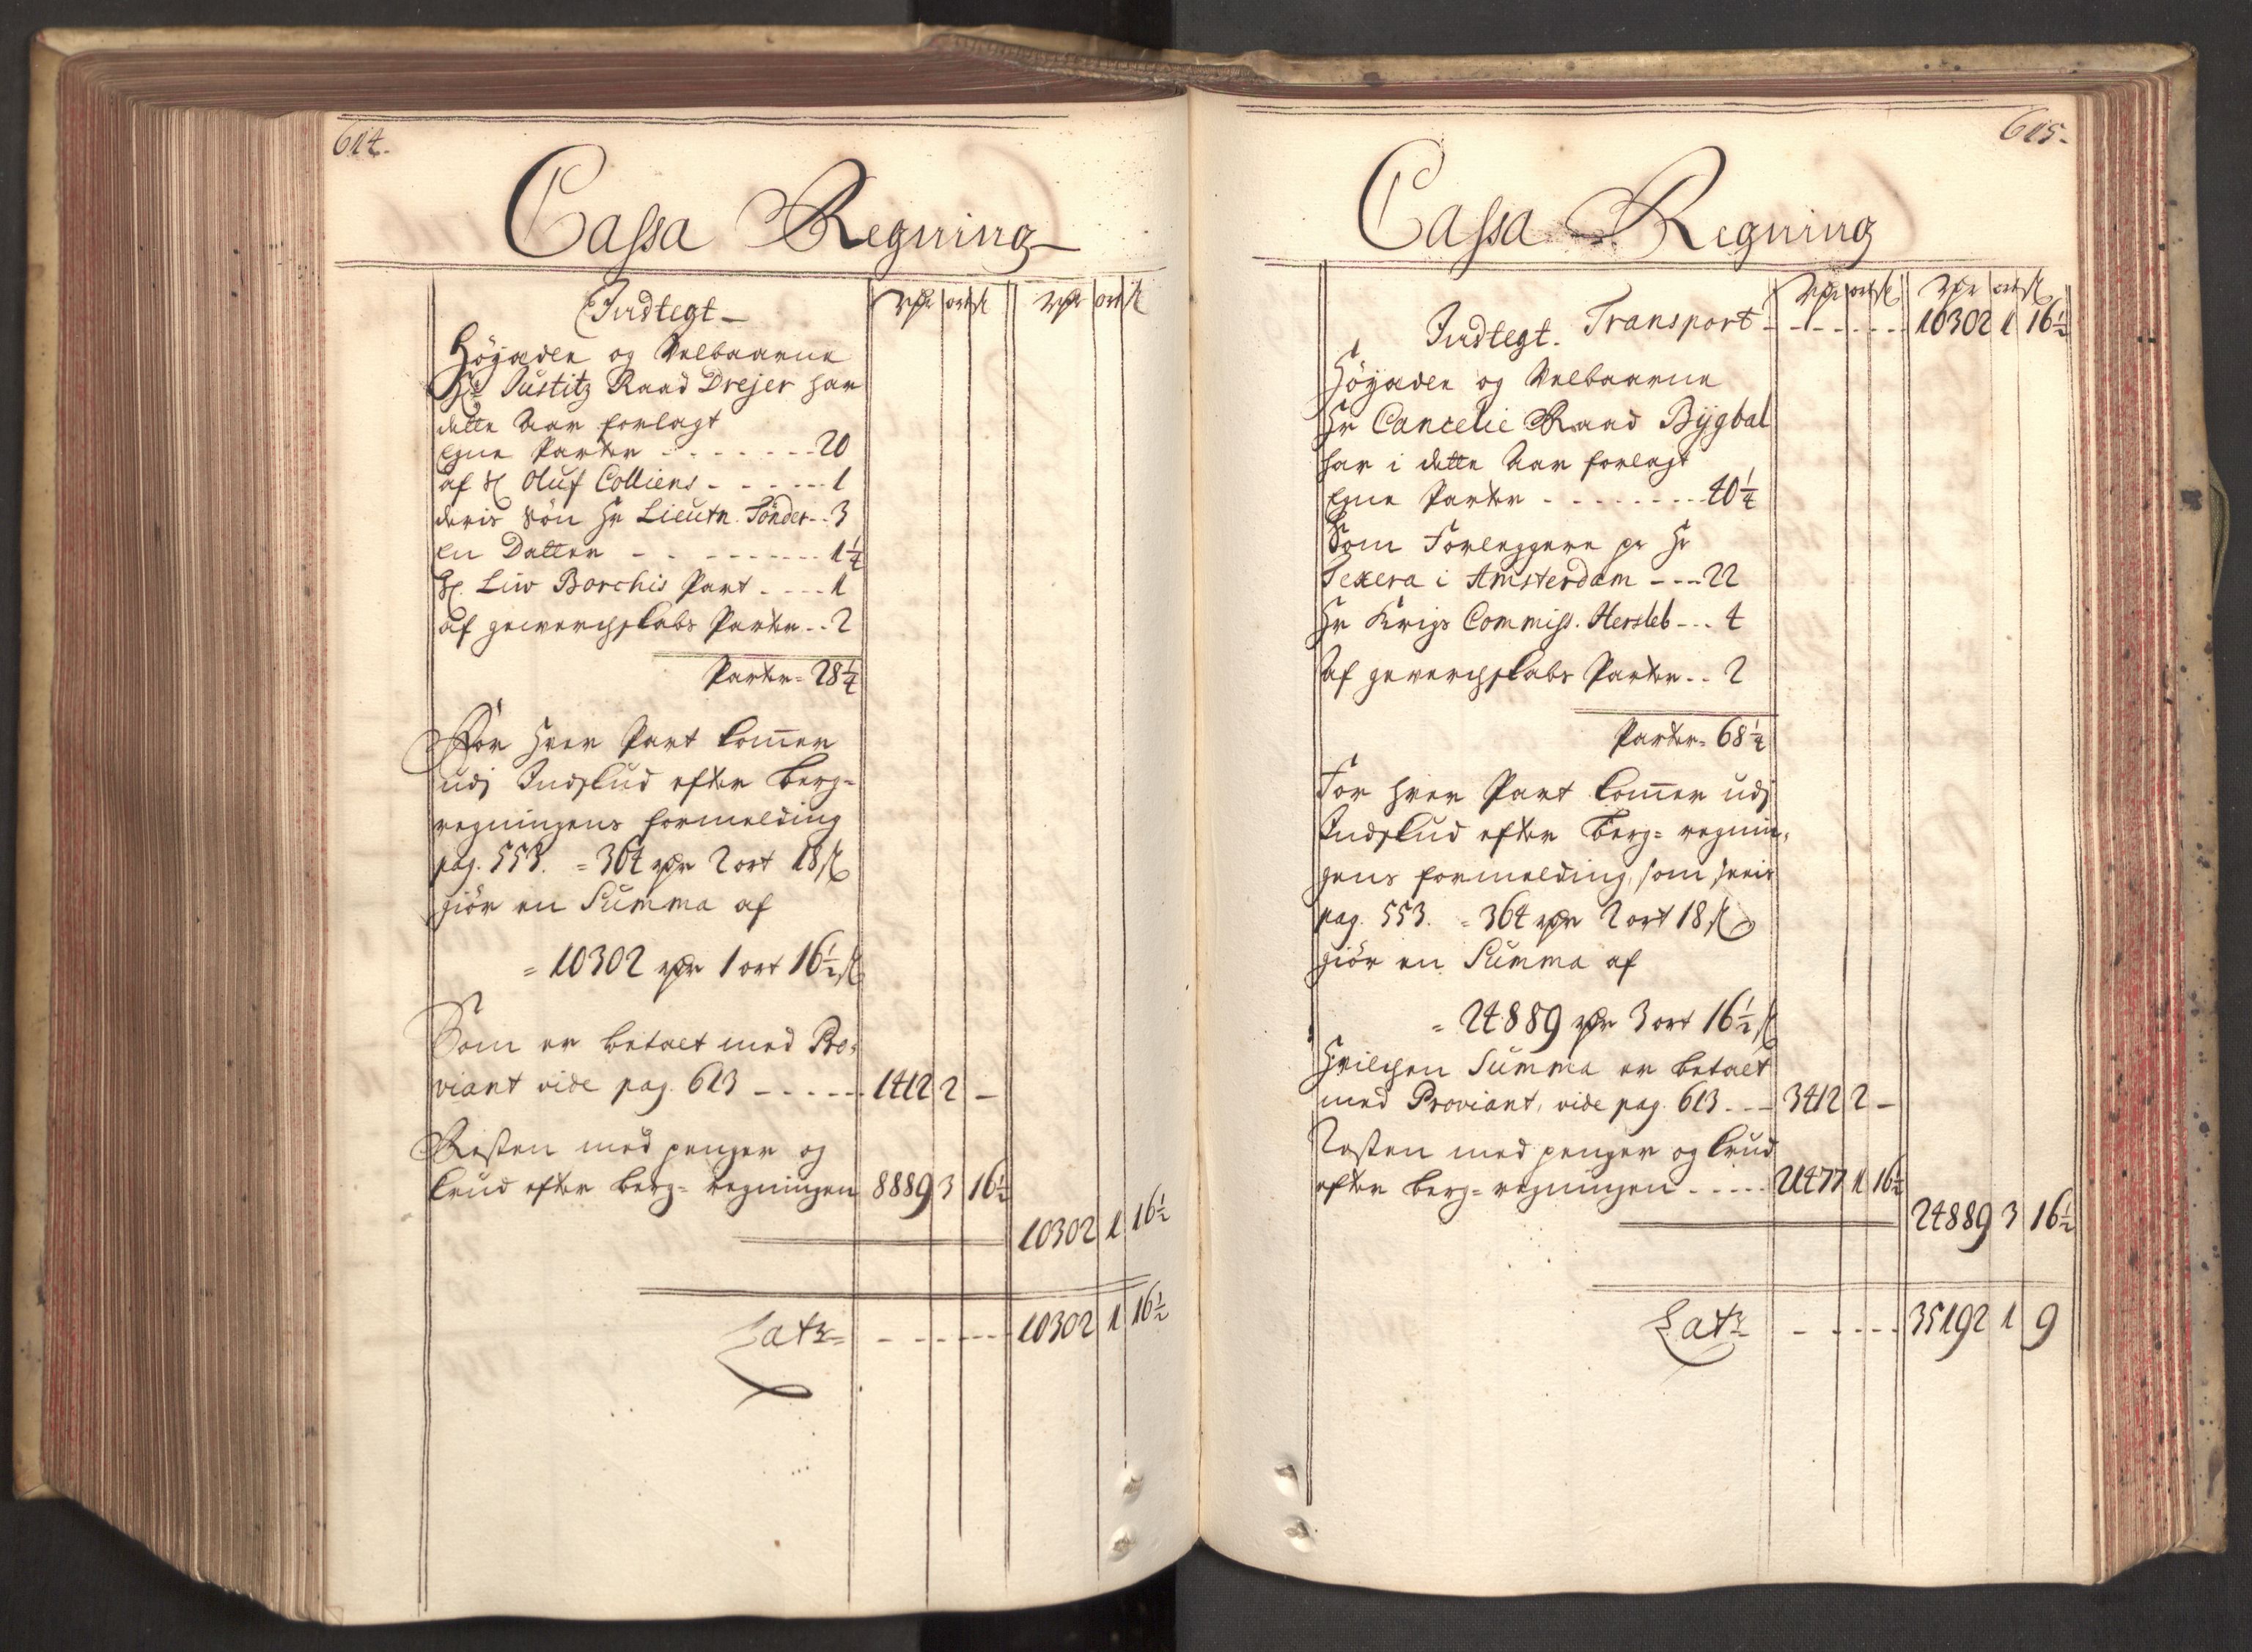 614.
Cassa Regning
Indtegt
rdr ort s rdr ort s
Höyædle og Velbaarne
Hr Justitz Raad Drejer har
dette Aar forlagt
Egne Parter - - - - - - - 20
af Sl Oluf Colliens - - - - - 1
deris Sön Hr Lieutn. Tönder - - 3
En Datter - - - - - - - 1 1/4
Sl. Liw Borchis Part - - - - 1
af gewerchskabs Parter - - 2
Parter = 28 1/4
For hver Part kommer
udj Indskud efter berg=
regningens formelding
pag. 553. = 364 rdr 2 ort 18 s
giör en Summa af
= 10302 rdr 1 ort 16 1/2 s
Som er betalt med Pro=
viant vide pag. 613 - - - - - 1412 2 -
Resten med penger og
krud efter berg= regningen 8889 3 16 1/2
10302 1 16 1/2
Latr= - - - - - 10302 1 16 1/2
615.
Cassa Regning
rdr ort s rdr ort s
Indtegt. Transport - - - - - - 10302 1 16 1/2
Höyædle og Velbaarne
Hr Cancelie Raad Bÿgbal
har i dette Aar forlagt
Egne Parter - - - - - - - 40 1/4
Som Forleggere pr Hr
Texera i Amsterdam - - - 22
Hr Krigs Commiss. Hersleb - - - 4
Af gewerchskabs Parter - - 2
Parter = 68 1/4
For hver Part kommer udj
Indskud efter berg= regnin=
gens formelding, som sees
pag. 553. = 364 rdr 2 ort 18 s
giör en Summa af
= 24889 rdr 3 ort 16 1/2 s
Hvilchen Summa er betalt
med Proviant, vide pag. 613 - - - 3412 2 -
Resten med penger og krud
efter berg= regningen - - - - - 21477 1 16 1/2
24889 3 16 1/2
Latr= - - - - - 35192 1 9